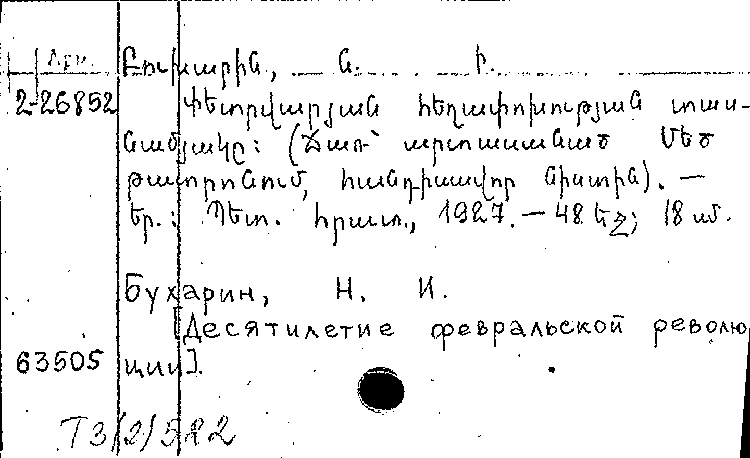 Арм. Բուխարին, Ն. Ի.
2-26852 Փետրվարյան հեղափոխության տաս-
նամյակը: (Ճառ՝ արտասանած Մեծ
թատրոնում, հանդիսավոր նիստին). —
Եր.: Պետ. հրատ., 1927. — 48 եջ; 18 սմ.
Бухарин, Н. И.
[Десятилетие февральской револю
63505 ции].
T3(2)522